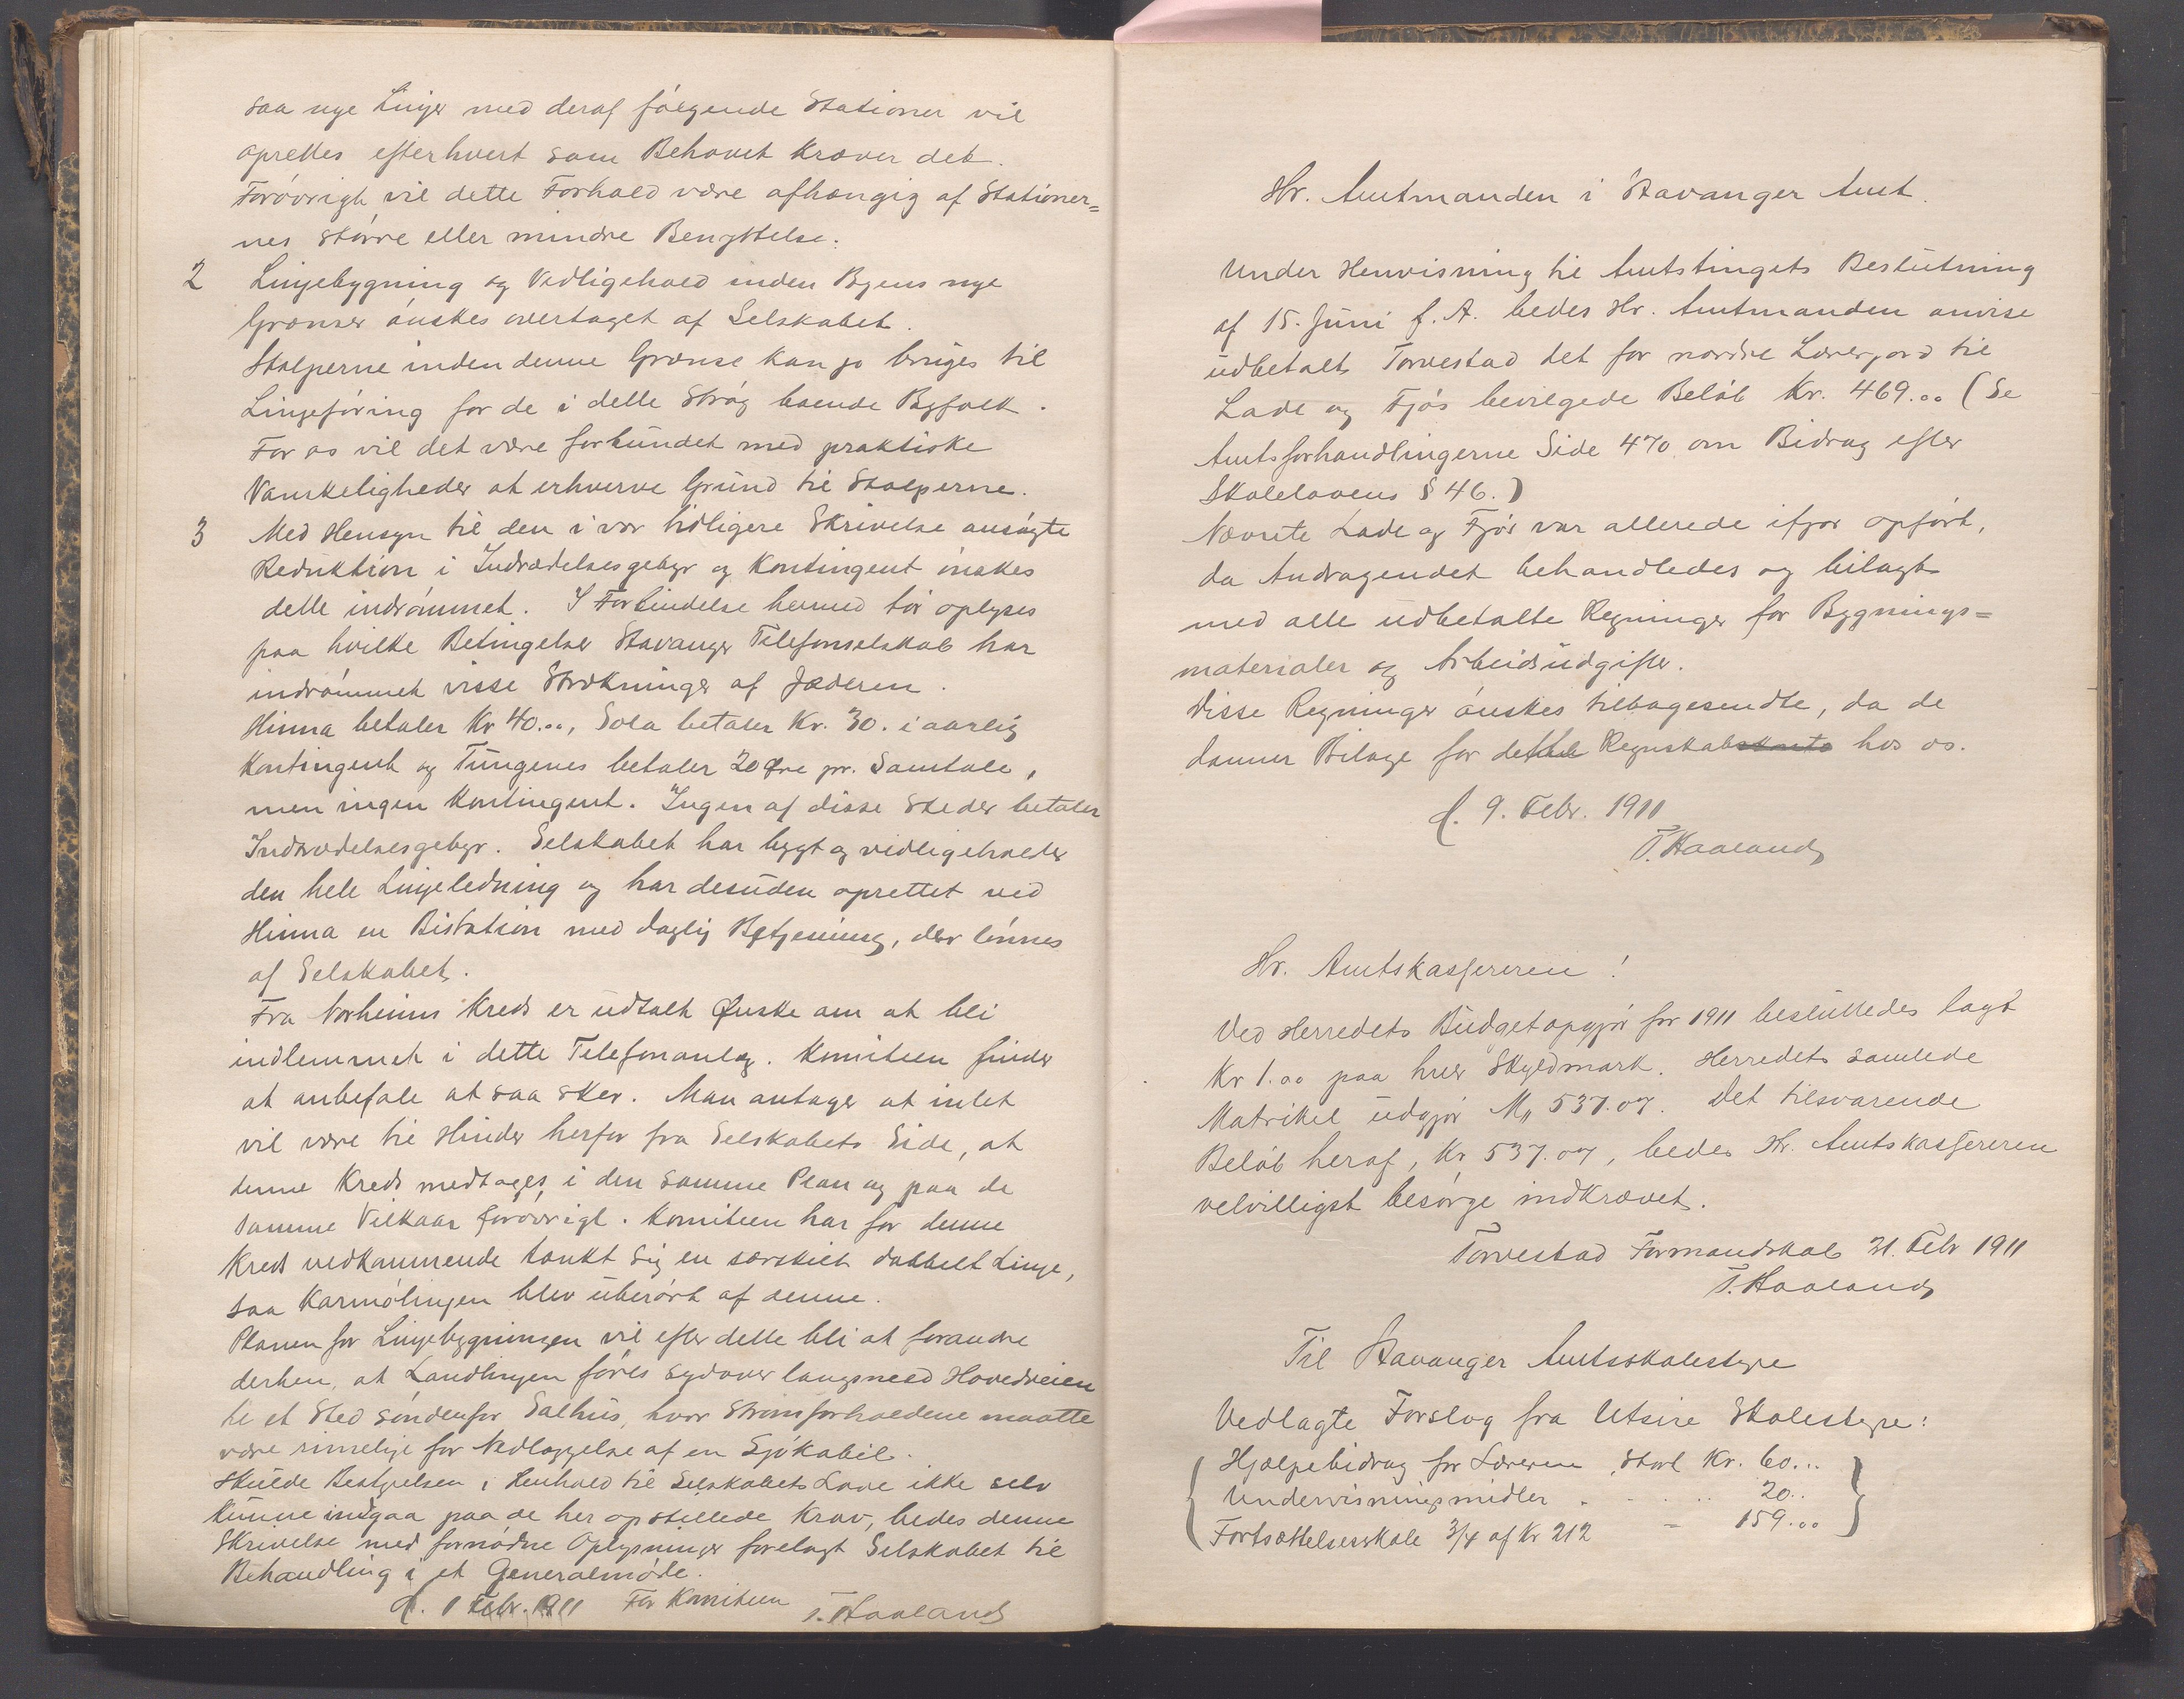 saa nye Linjer med deraf følgende Stationer vil
oprettes efterhvert som Behovet kræver det.
Forøvrigt vil dette Forhold være afhængig af Stationer=
nes større eller mindre Benyttelse.
2 Linjebygning og Vedligehold inden Byens nye
Grænser ønskes overtaget af Selskabet.
Stolperne inden denne Grænse kan jo bruges til
Linjeføring for de i dette Strøg boende Byfolk.
For os vil det være forbundet med praktiske
Vanskeligheder at erhverve Grund til Stolperne.
3 Med Hensyn til den i vor tidligere Skrivelse ansøgte
Reduktion i Indtrædelsesgebyr og Kontingent ønskes
dette indrømmet. I Forbindelse hermed tør oplyses
paa hvilke Betingelser Stavanger Telefonselskab har
indrømmet visse Strækninger af Jæderen.
Hinna betaler Kr 40.00, Sola betaler Kr. 30. i aarlig
Kontingent og Tungenes betaler 20 Øre pr. Samtale,
men ingen Kontingent. Ingen af disse Steder betaler
Indtrædelsesgebyr. Selskabet har bygt og vedligeholder
den hele Linjeledning og har desuden oprettet ved
Hinna en Bistation med daglig Betjening, der lønnes
af Selskabet.
Fra Norheims Kreds er udtalt Ønske om at bli
indlemmet i dette Telefonanlæg. Komiteen finder
at anbefale at saa sker. Man antager at intet
vil være til Hinder herfor fra Selskabets Side, at
denne Kreds medtages i den samme Plan og paa de
samme Vilkaar forøvrigt. Komiteen har for denne
Kreds vedkommende tænkt sig en særskilt dobbelt Linje,
saa Karmølinjen blev uberørt af denne.
Planen for Linjebygningen vil efter dette bli at forandre
derhen, at Landlinjen føres sydover langsmed Hovedveien
til et Sted søndenfor Salhus, hvor Strømforholdene maatte
være rimelige for Nedlæggelse af en Sjøkabel.
Skulde Bestyrelsen i Henhold til Selskabets Love ikke selv
kunne indgaa paa de her opstillede Krav, bedes denne
Skrivelse med fornødne Oplysninger forelagt Selskabet til
Behandling i et Generalmøde.
d. 1 Febr. 1911 For Komiteen T. Haaland
Hr. Amtmanden i Stavanger Amt.
Under Henvisning til Amtstingets Beslutning
af 15. Juni f. A. bedes Hr. Amtmanden anvise
udbetalt Torvestad det for nordre Lærerjord til
Lade og Fjøs bevilgede Beløb Kr. 469.00 (Se
Amtsforhandlingerne Side 470 om Bidrag efter
Skolelovens § 46.)
Nævnte Lade og Fjøs var allerede ifjor opført,
da Andragendet behandledes og bilagt
med alle udbetalte Regninger for Bygnings=
materialer og Arbeidsudgifter.
Disse Regninger ønskes tilbagesendte, da de
danner Bilage for dette Regnskabskonto hos os.
d. 9. Febr. 1911
T. Haaland
Hr. Amtskasfereren!
Ved Herredets Budgetopgjør for 1911 besluttedes lagt
Kr 1.00 paa hver Skyldmark. Herredets samlede
Matrikel udgjør M„ 537.07. Det tilsvarende
Beløb heraf, Kr 537.07, bedes Hr. Amtskasfereren
velvilligst besørge indkrævet.
Torvestad Formandskab 21. Febr 1911
T. Haaland
Til Stavanger Amtsskolestyre
Vedlagte Forslag fra Utsire Skolestyre:
Hjælpebidrag for Læreren, stort Kr. 60...
Undervisningsmidler . - . .. 20..
Fortsættelsesskole 3/4 af Kr 212 - 159.00